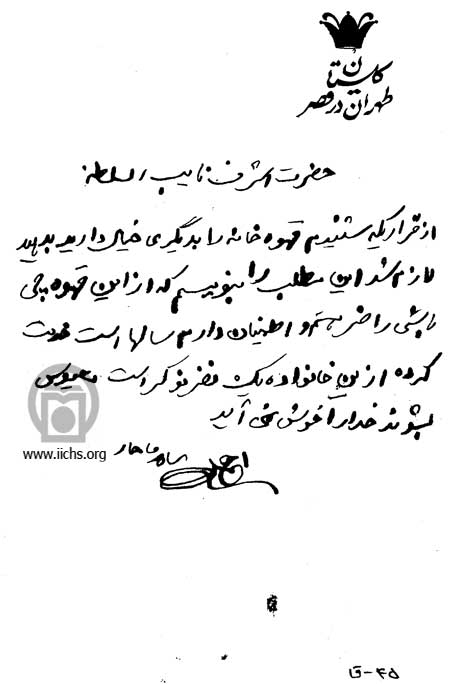 گلستان
طهران در قصر
حضرت اشرف نایب السلطنه
از قراریکه شنیدم قهوه خانه را بدیگری خیال دارید بدهید
لازم شد این مطلب را بنویسم که از این قهوه چی
باشی راضی هستم و اطمینان دارم سالها است خدمت
کرده از این خانواده یک نفر نوکر است مأیوس
بشوند خدا را خوش نمی آید
احمد شاه قاجار
www.iichs.org
۴۵-ق